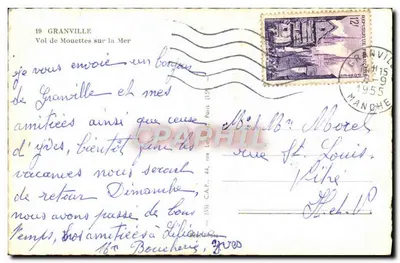 19 GRANVILLE
Vol de Mouettes sur la Mer
je vous envoie un bonjour
de Granville et mes
amitiées ainsi que ceux
d'Yves, bientôt fini les
vacances nous seront
de retour Dimanche,
nous avons passé de bons
temps, nos amitiées à Liliane
Yves
12
GRANVILLE
15
9
1955
MANCHE
Mr et Mme Morel
rue St. Louis
Vitré
I. et V.